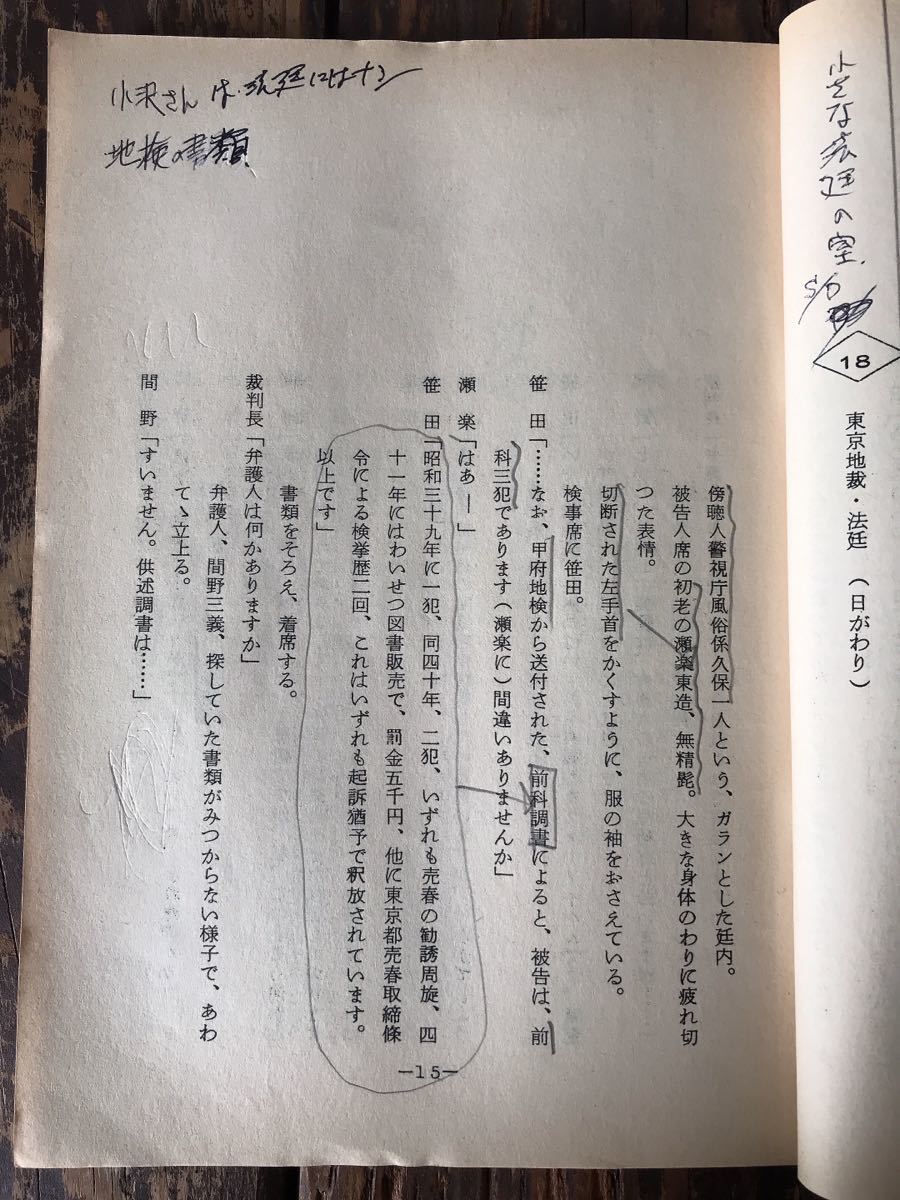 小さな法廷の室.
18
東京地裁・法廷　（日がわり）
傍聴人警視庁風俗係久保一人という、ガランとした廷内。
被告人席の初老の瀬楽東造、無精髭。大きな身体のわりに疲れ切
つた表情。
切断された左手首をかくすように、服の袖をおさえている。
検事席に笹田。
笹　田「……なお、甲府地検から送付された、前科調書によると、被告は、前
科三犯であります（瀬楽に）間違いありませんか」
瀬　楽「はあ――」
笹　田「昭和三十九年に一犯、同四十年、二犯、いずれも売春の勧誘周旋、四
十一年にはわいせつ図書販売で、罰金五千円、他に東京都売春取締條
令による検挙歴二回、これはいずれも起訴猶予で釈放されています。
以上です」
書類をそろえ、着席する。
裁判長「弁護人は何かありますか」
弁護人、間野三義、探していた書類がみつからない様子で、あわ
てゝ立上る。
間　野「すいません。供述調書は……」
小沢さん は 法廷にはナシ
地検の書類
—15—